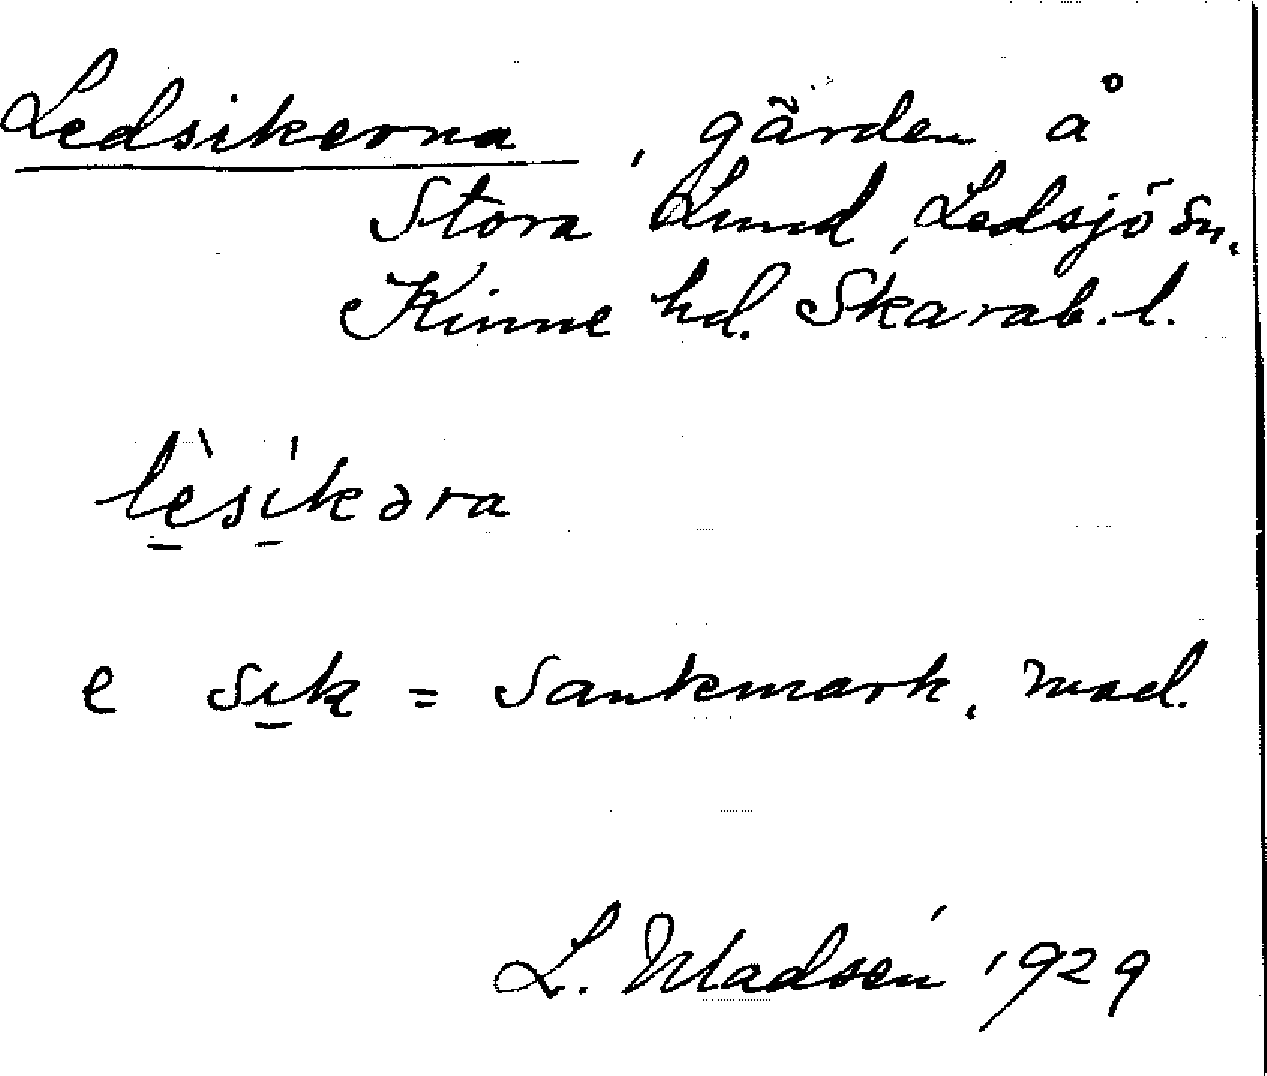 Ledsikerna, gärden å
Stora Lund, Ledsjö sn.
Kinne hd. Skarab. l.
lèsíkəra
e sik = sankmark, mad.
L. Madsén 1929